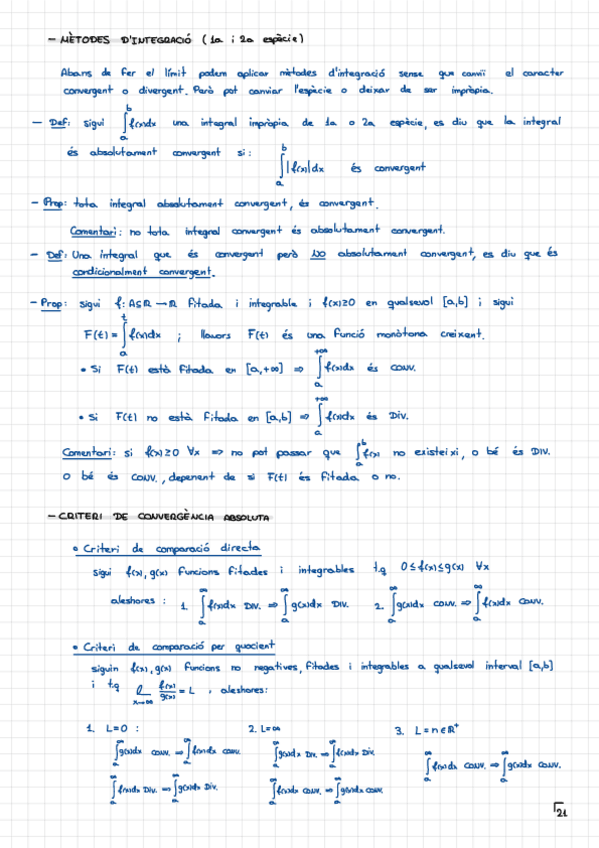 - MÈTODES D'INTEGRACIÓ (1a i 2a espècie)
Abans de fer el límit podem aplicar mètodes d'integració sense que canviï el caracter
convergent o divergent. Però pot canviar l'espècie o deixar de ser impròpia.
- Def: sigui ∫_a^b f(x)dx una integral impròpia de 1a o 2a espècie, es diu que la integral
és absolutament convergent si: ∫_a^b |f(x)|dx és convergent
- Prop: tota integral absolutament convergent, és convergent.
Comentari: no tota integral convergent és absolutament convergent.
- Def: Una integral que és convergent però NO absolutament convergent, es diu que és
condicionalment convergent.
- Prop: sigui f: A⊆ℝ → ℝ fitada i integrable i f(x)≥0 en qualsevol [a,b] i sigui
F(t) = ∫_a^t f(x)dx ; llavors F(t) és una funció monòtona creixent.
• Si F(t) està fitada en [a,+∞] ⇒ ∫_a^{+∞} f(x)dx és CONV.
• Si F(t) no està fitada en [a,b] ⇒ ∫_a^{+∞} f(x)dx és DIV.
Comentari: si f(x)≥0 ∀x ⇒ no pot passar que ∫_a^b f(x) no existeixi, o bé és DIV.
O bé és CONV., depenent de si F(t) és fitada o no.
- CRITERI DE CONVERGÈNCIA ABSOLUTA
• Criteri de comparació directa
sigui f(x), g(x) funcions fitades i integrables t.q 0≤f(x)≤g(x) ∀x
aleshores : 1. ∫_a^∞ f(x)dx DIV. ⇒ ∫_a^∞ g(x)dx DIV. 2. ∫_a^∞ g(x)dx CONV. ⇒ ∫_a^∞ f(x)dx CONV.
• Criteri de comparació per quocient
siguin f(x), g(x) funcions no negatives, fitades i integrables a qualsevol interval [a,b]
i t.q lim_{x→∞} f(x)/g(x) = L , aleshores:
1. L=0 : 2. L=∞ 3. L=n∈ℝ⁺
∫_a^∞ g(x)dx CONV. ⇒ ∫_a^∞ f(x)dx CONV. ∫_a^∞ g(x)dx DIV. ⇒ ∫_a^∞ f(x)dx DIV. ∫_a^∞ f(x)dx CONV. ⇒ ∫_a^∞ g(x)dx CONV.
∫_a^∞ f(x)dx DIV. ⇒ ∫_a^∞ g(x)dx DIV. ∫_a^∞ f(x)dx CONV. ⇒ ∫_a^∞ g(x)dx CONV.
21